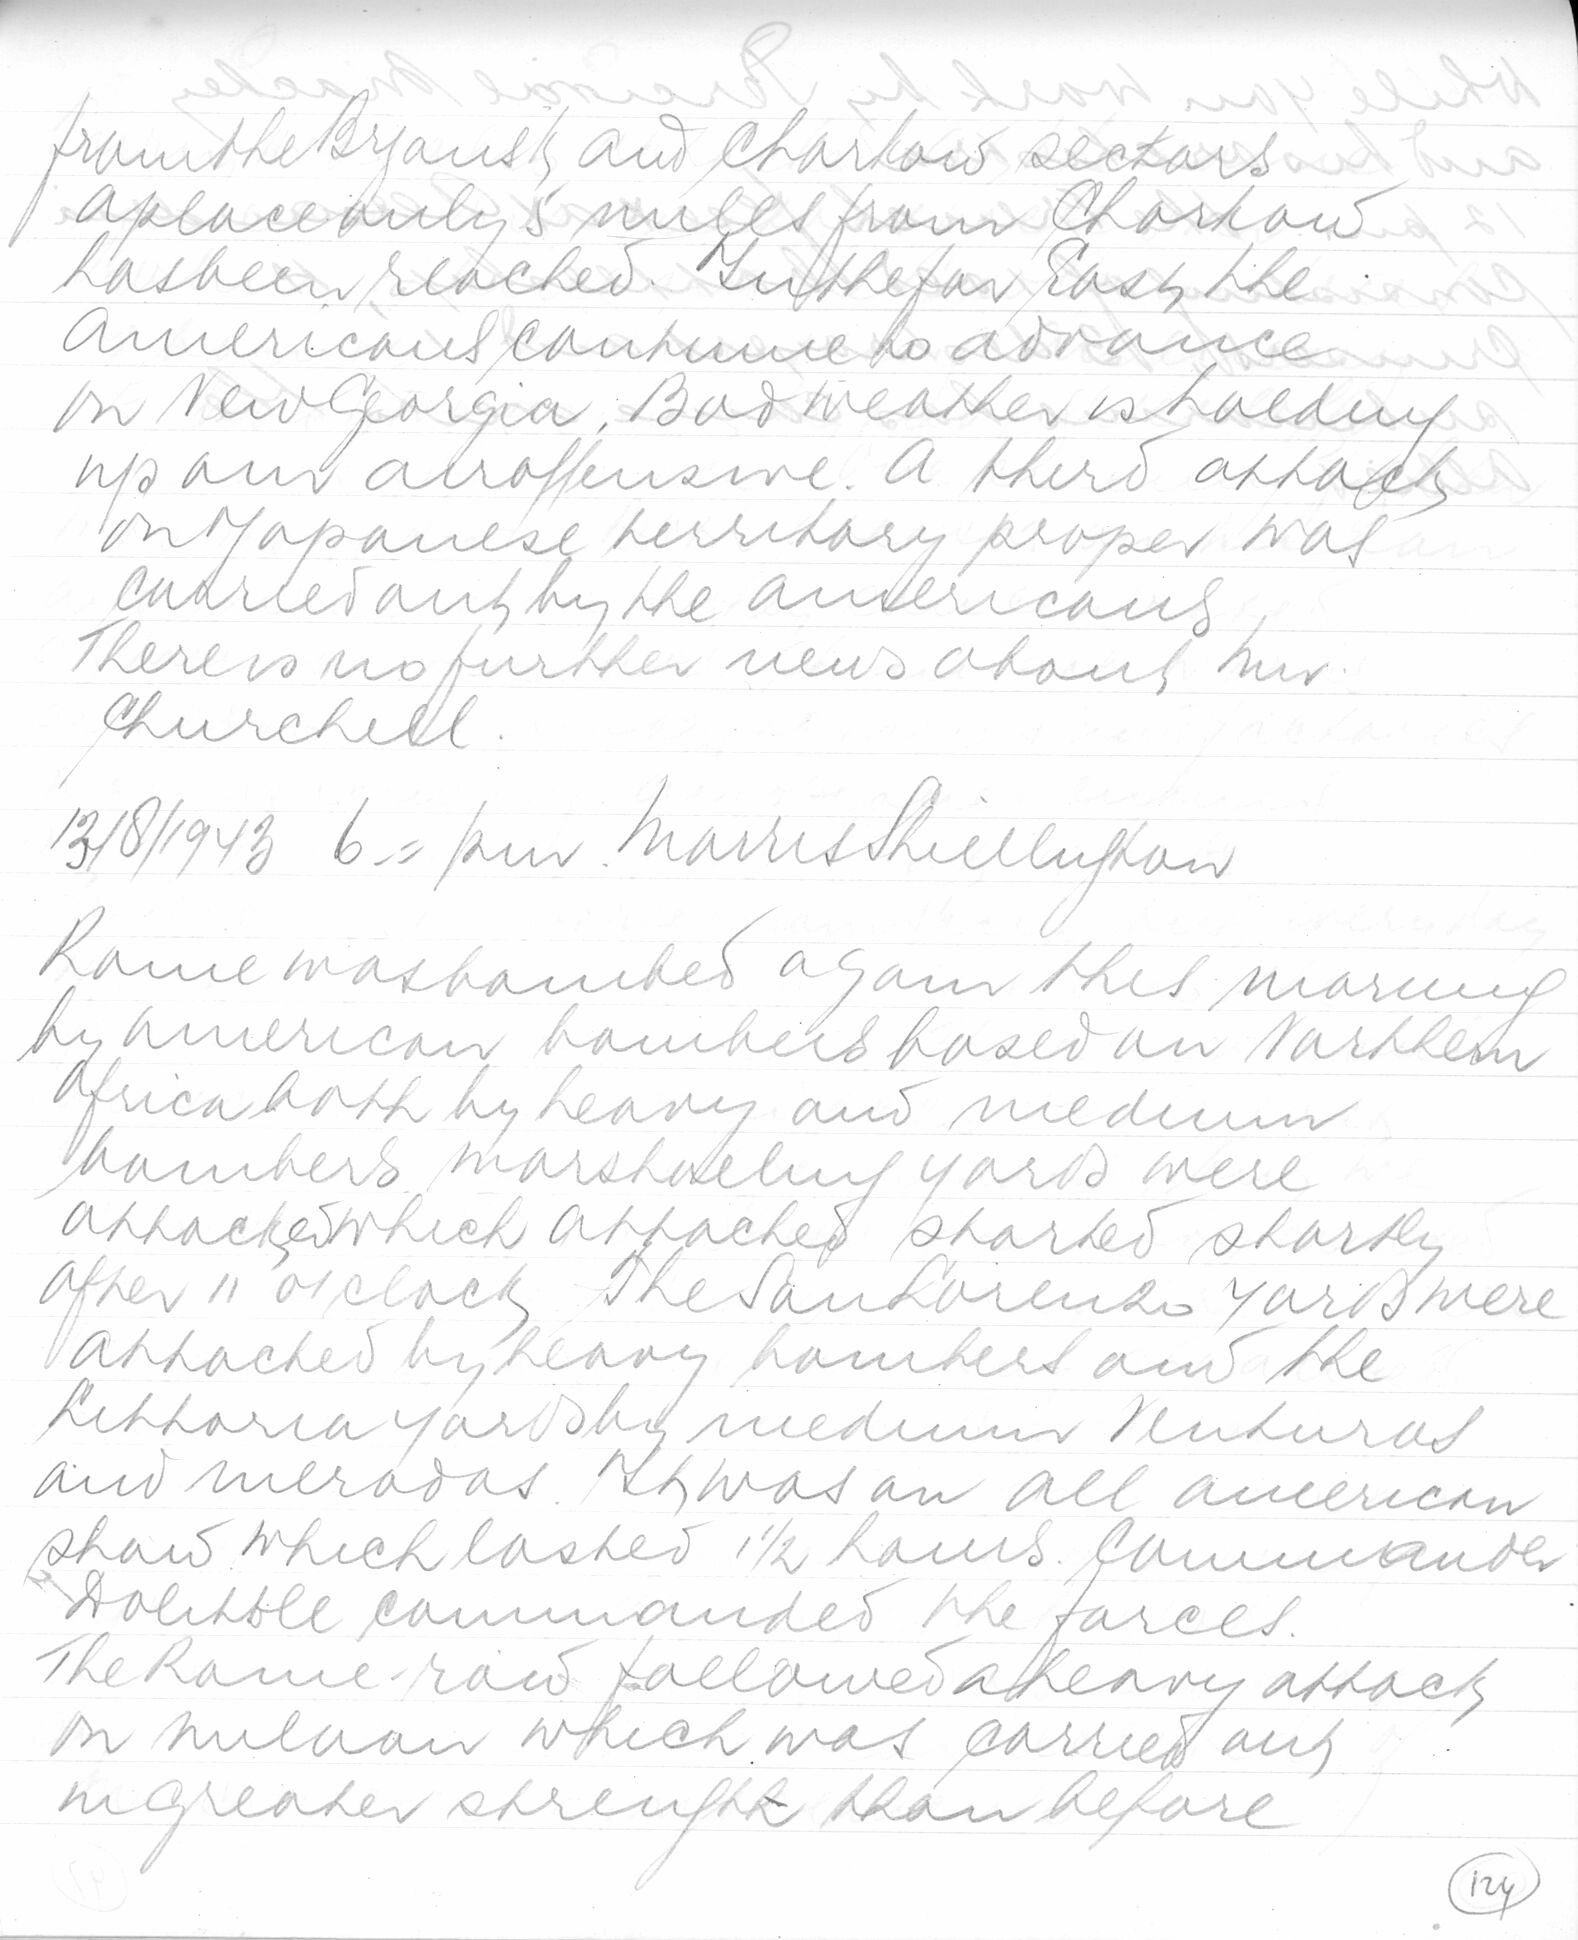 from the Bryansk and Charkow sectors
a place only 5 miles from Charkow
has been reached. In the far East, the
Americans continue to advance
on New Georgia. Bad weather is holding
up our airoffensive. A third attack
on Japanese territory proper was
carried out by the Americans
There is no further news about Mr.
Churchill.
13/8/1943 6 = pm. Morris Shillington
Rome was bombed again this morning
by American bombers based on Northern
Africa both by heavy and medium
bombers. Marshaeling yards were
attacked which attached started shortly
after 11 o'clock The San Lorenzo yards were
attached by heavy bombers and the
Littoria yards by medium Venturas
and meradas. It was an all American
show which lasted 1 1/2 hours. Commander
Dolittle commanded the forces.
The Rome-raid followed a heavy attack
on Milaan which was carried out
in greater strenght than before
124